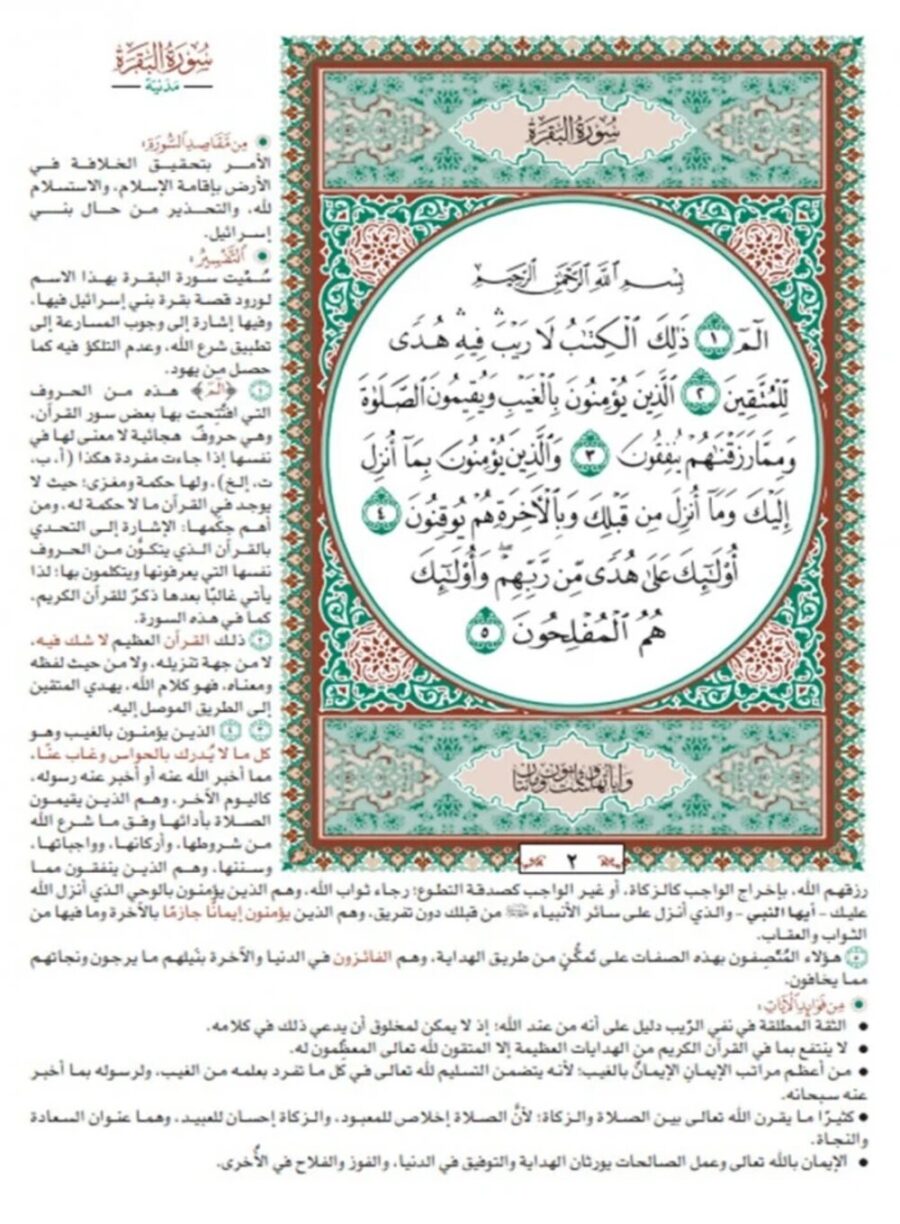 سُورَةُ البَقَرَةِ
مَدَنيّة
مِن مَّقَاصِدِ السُّورَةِ:
الأمــر بتحقـيـق الخـلافــة فــي
الأرض بإقامة الإسلام، والاستسلام
لله، والتحـذير مـن حـال بنـي
إسرائيل.
التَّفْسِيرُ:
سُـمِّيت سـورة البقـرة بهـذا الاسـم
لورود قصة بقرة بني إسرائيل فيها،
وفيها إشارة إلى وجوب المسارعة إلى
تطبيق شرع الله، وعدم التلكؤ فيه كما
حصل من يهود.
١ ﴿الٓمٓ﴾ هذه من الحروف
التي افتُتِحت بها بعض سور القرآن،
وهي حروفٌ هجائية لا معنى لها في
نفسها إذا جاءت مفردة هكذا (أ، ب،
ت، إلخ)، ولها حكمة ومغزى؛ حيث لا
يوجد في القرآن ما لا حكمة له، ومن
أهم حِكَمها: الإشارة إلى التحدي
بالقرآن الذي يتكوَّن من الحروف
نفسها التي يعرفونها ويتكلمون بها؛ لذا
يأتي غالبًا بعدها ذكرٌ للقرآن الكريم،
كما في هذه السورة.
٢ ذلك القرآن العظيم لا شك فيه،
لا من جهة تنزيله، ولا من حيث لفظه
ومعناه، فهو كلام الله، يهدي المتقين
إلى الطريق الموصل إليه.
٣ ٤ الذين يؤمنون بالغيب وهو
كل ما لا يُدرك بالحواس وغاب عنَّا،
مما أخبر الله عنه أو أخبر عنه رسوله،
كاليوم الآخر، وهم الذين يقيمون
الصلاة بأدائها وفق ما شرع الله
من شروطها، وأركانها، وواجباتها،
وسننها، وهم الذين ينفقون مما
سُورَةُ البَقَرَةِ
بِسْمِ اللَّهِ الرَّحْمَٰنِ الرَّحِيمِ
الٓمٓ ١ ذَٰلِكَ الْكِتَابُ لَا رَيْبَ ۛ فِيهِ ۛ هُدًى
لِّلْمُتَّقِينَ ٢ الَّذِينَ يُؤْمِنُونَ بِالْغَيْبِ وَيُقِيمُونَ الصَّلَاةَ
وَمِمَّا رَزَقْنَاهُمْ يُنفِقُونَ ٣ وَالَّذِينَ يُؤْمِنُونَ بِمَا أُنزِلَ
إِلَيْكَ وَمَا أُنزِلَ مِن قَبْلِكَ وَبِالْآخِرَةِ هُمْ يُوقِنُونَ ٤
أُولَٰئِكَ عَلَىٰ هُدًى مِّن رَّبِّهِمْ ۖ وَأُولَٰئِكَ
هُمُ الْمُفْلِحُونَ ٥
٢
رزقهم الله، بإخراج الواجب كالزكاة، أو غير الواجب كصدقة التطوع؛ رجاء ثواب الله، وهم الذين يؤمنون بالوحي الذي أنزل الله
عليك - أيها النبي - والذي أنزل على سائر الأنبياء من قبلك دون تفريق، وهم الذين يؤمنون إيمانًا جازمًا بالآخرة وما فيها من
الثواب والعقاب.
٥ هؤلاء المُتَّصِفون بهذه الصفات على تَمكُّنٍ من طريق الهداية، وهم الفائزون في الدنيا والآخرة بنَيلهم ما يرجون ونجاتهم
مما يخافون.
مِن فَوَائِدِ الآيَاتِ:
• الثقة المطلقة في نفي الرَّيب دليل على أنه من عند الله؛ إذ لا يمكن لمخلوق أن يدعي ذلك في كلامه.
• لا ينتفع بما في القرآن الكريم من الهدايات العظيمة إلا المتقون لله تعالى المعظِّمون له.
• من أعظم مراتب الإيمانِ الإيمانُ بالغيب؛ لأنه يتضمن التسليم لله تعالى في كل ما تفرد بعلمه من الغيب، ولرسوله بما أخبر
عنه سبحانه.
• كثيرًا ما يقرن الله تعالى بين الصلاة والزكاة؛ لأنَّ الصلاة إخلاص للمعبود، والزكاة إحسان للعبيد، وهما عنوان السعادة
والنجاة.
• الإيمان بالله تعالى وعمل الصالحات يورثان الهداية والتوفيق في الدنيا، والفوز والفلاح في الأُخرى.